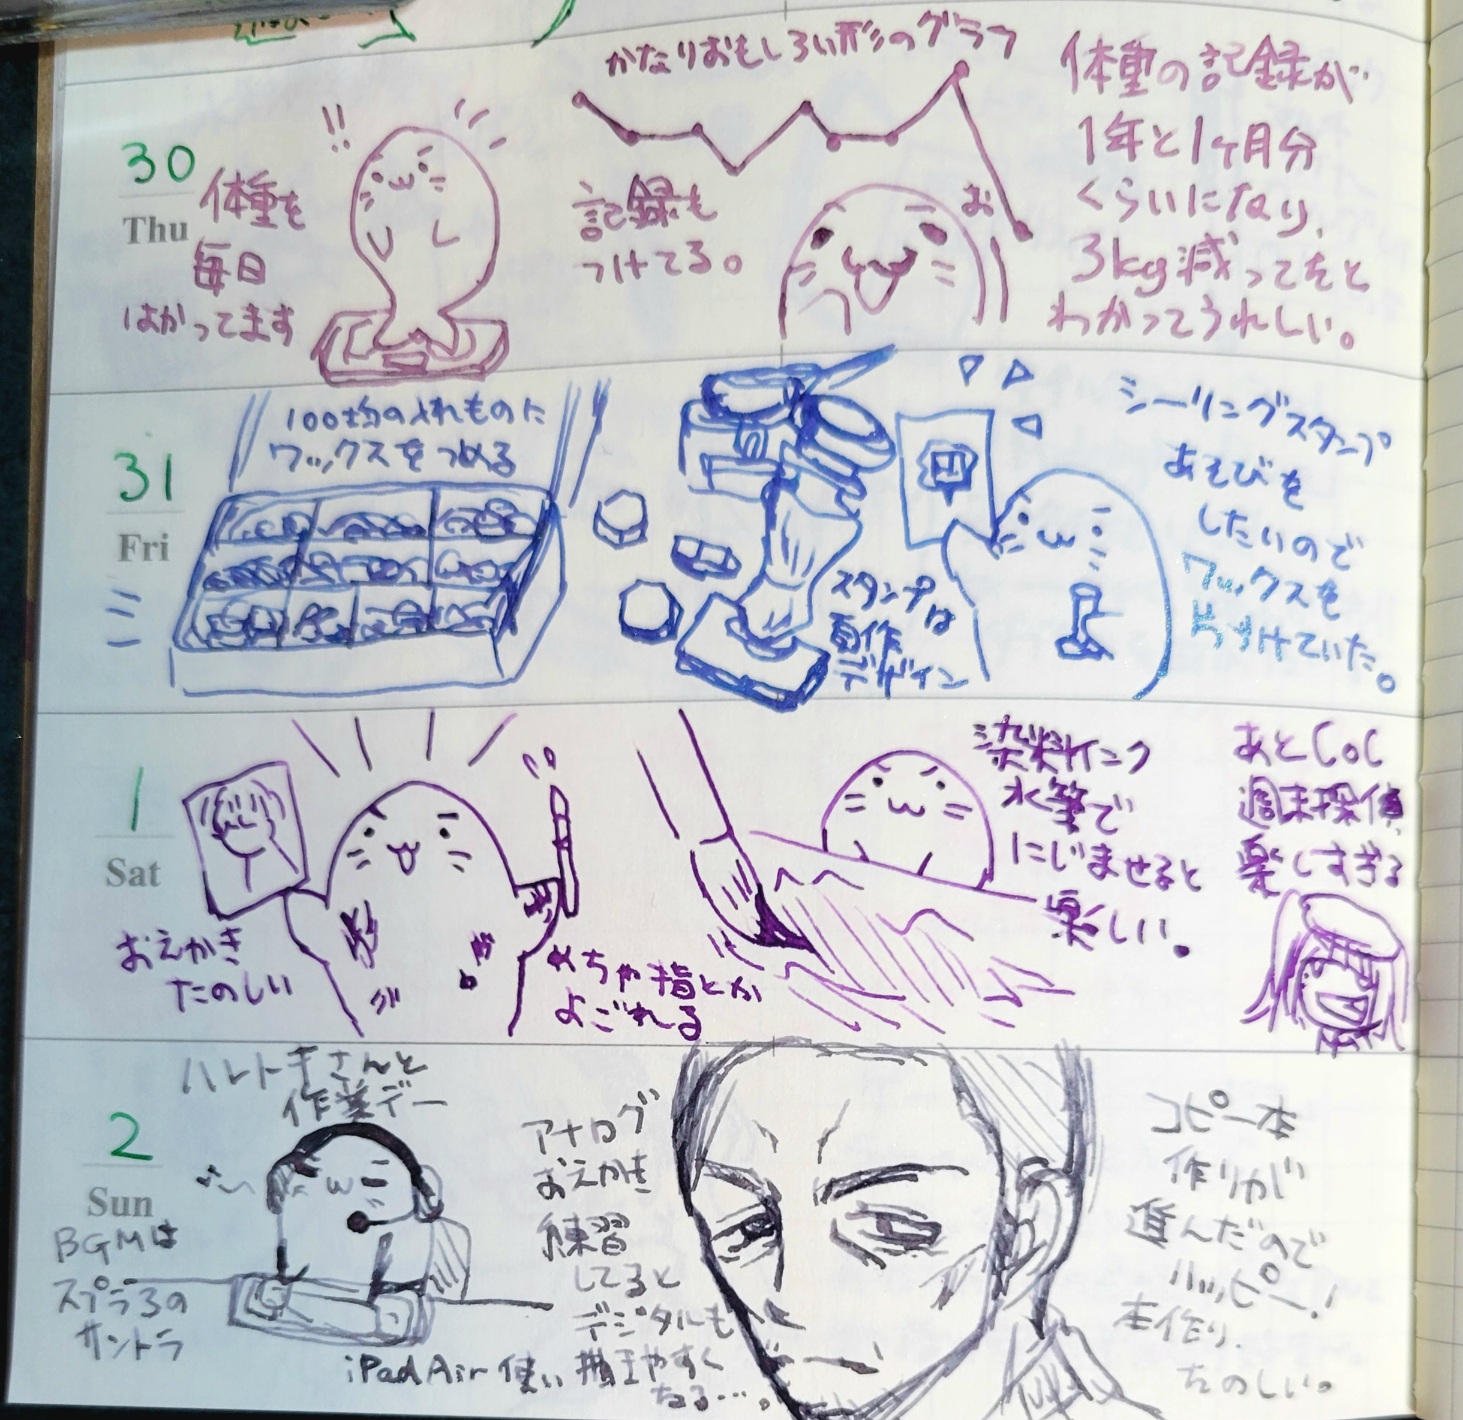 30
Thu
体重を
毎日
はかってます
!!
かなりおもしろい形のグラフ
記録も
つけてる。
お
体重の記録が
1年と1ヶ月分
くらいになり、
3kg減ってたと
わかってうれしい。
31
Fri
100均の入れものに
ワックスをつめる
スタンプは
自作
デザイン
シーリングスタンプ
あそびを
したいので
ワックスを
片付けていた。
1
Sat
おえかき
たのしい
めちゃ指とか
よごれる
染料インク
水筆で
にじませると
楽しい。
あとCoC
週末探偵
楽しすぎる
2
Sun
ハレトキさんと
作業デー
BGMは
スプラ3の
サントラ
アナログ
おえかき
練習
してると
デジタルも
iPad Air 使い
やすく
なる…。
コピー本
作りが
進んだので
ハッピー!
本作り、
たのしい。